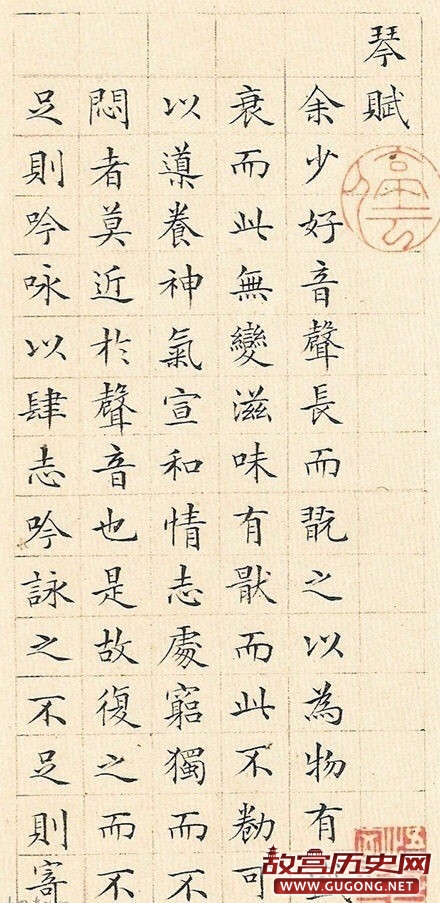 琴賦
余少好音聲長而翫之以為物有
衰而此無變滋味有猒而此不勌可
以導養神氣宣和情志處窮獨而不
悶者莫近於聲音也是故復之而不
足則吟咏以肆志吟詠之不足則寄
故宫历史网
WWW.GUGONG.NET